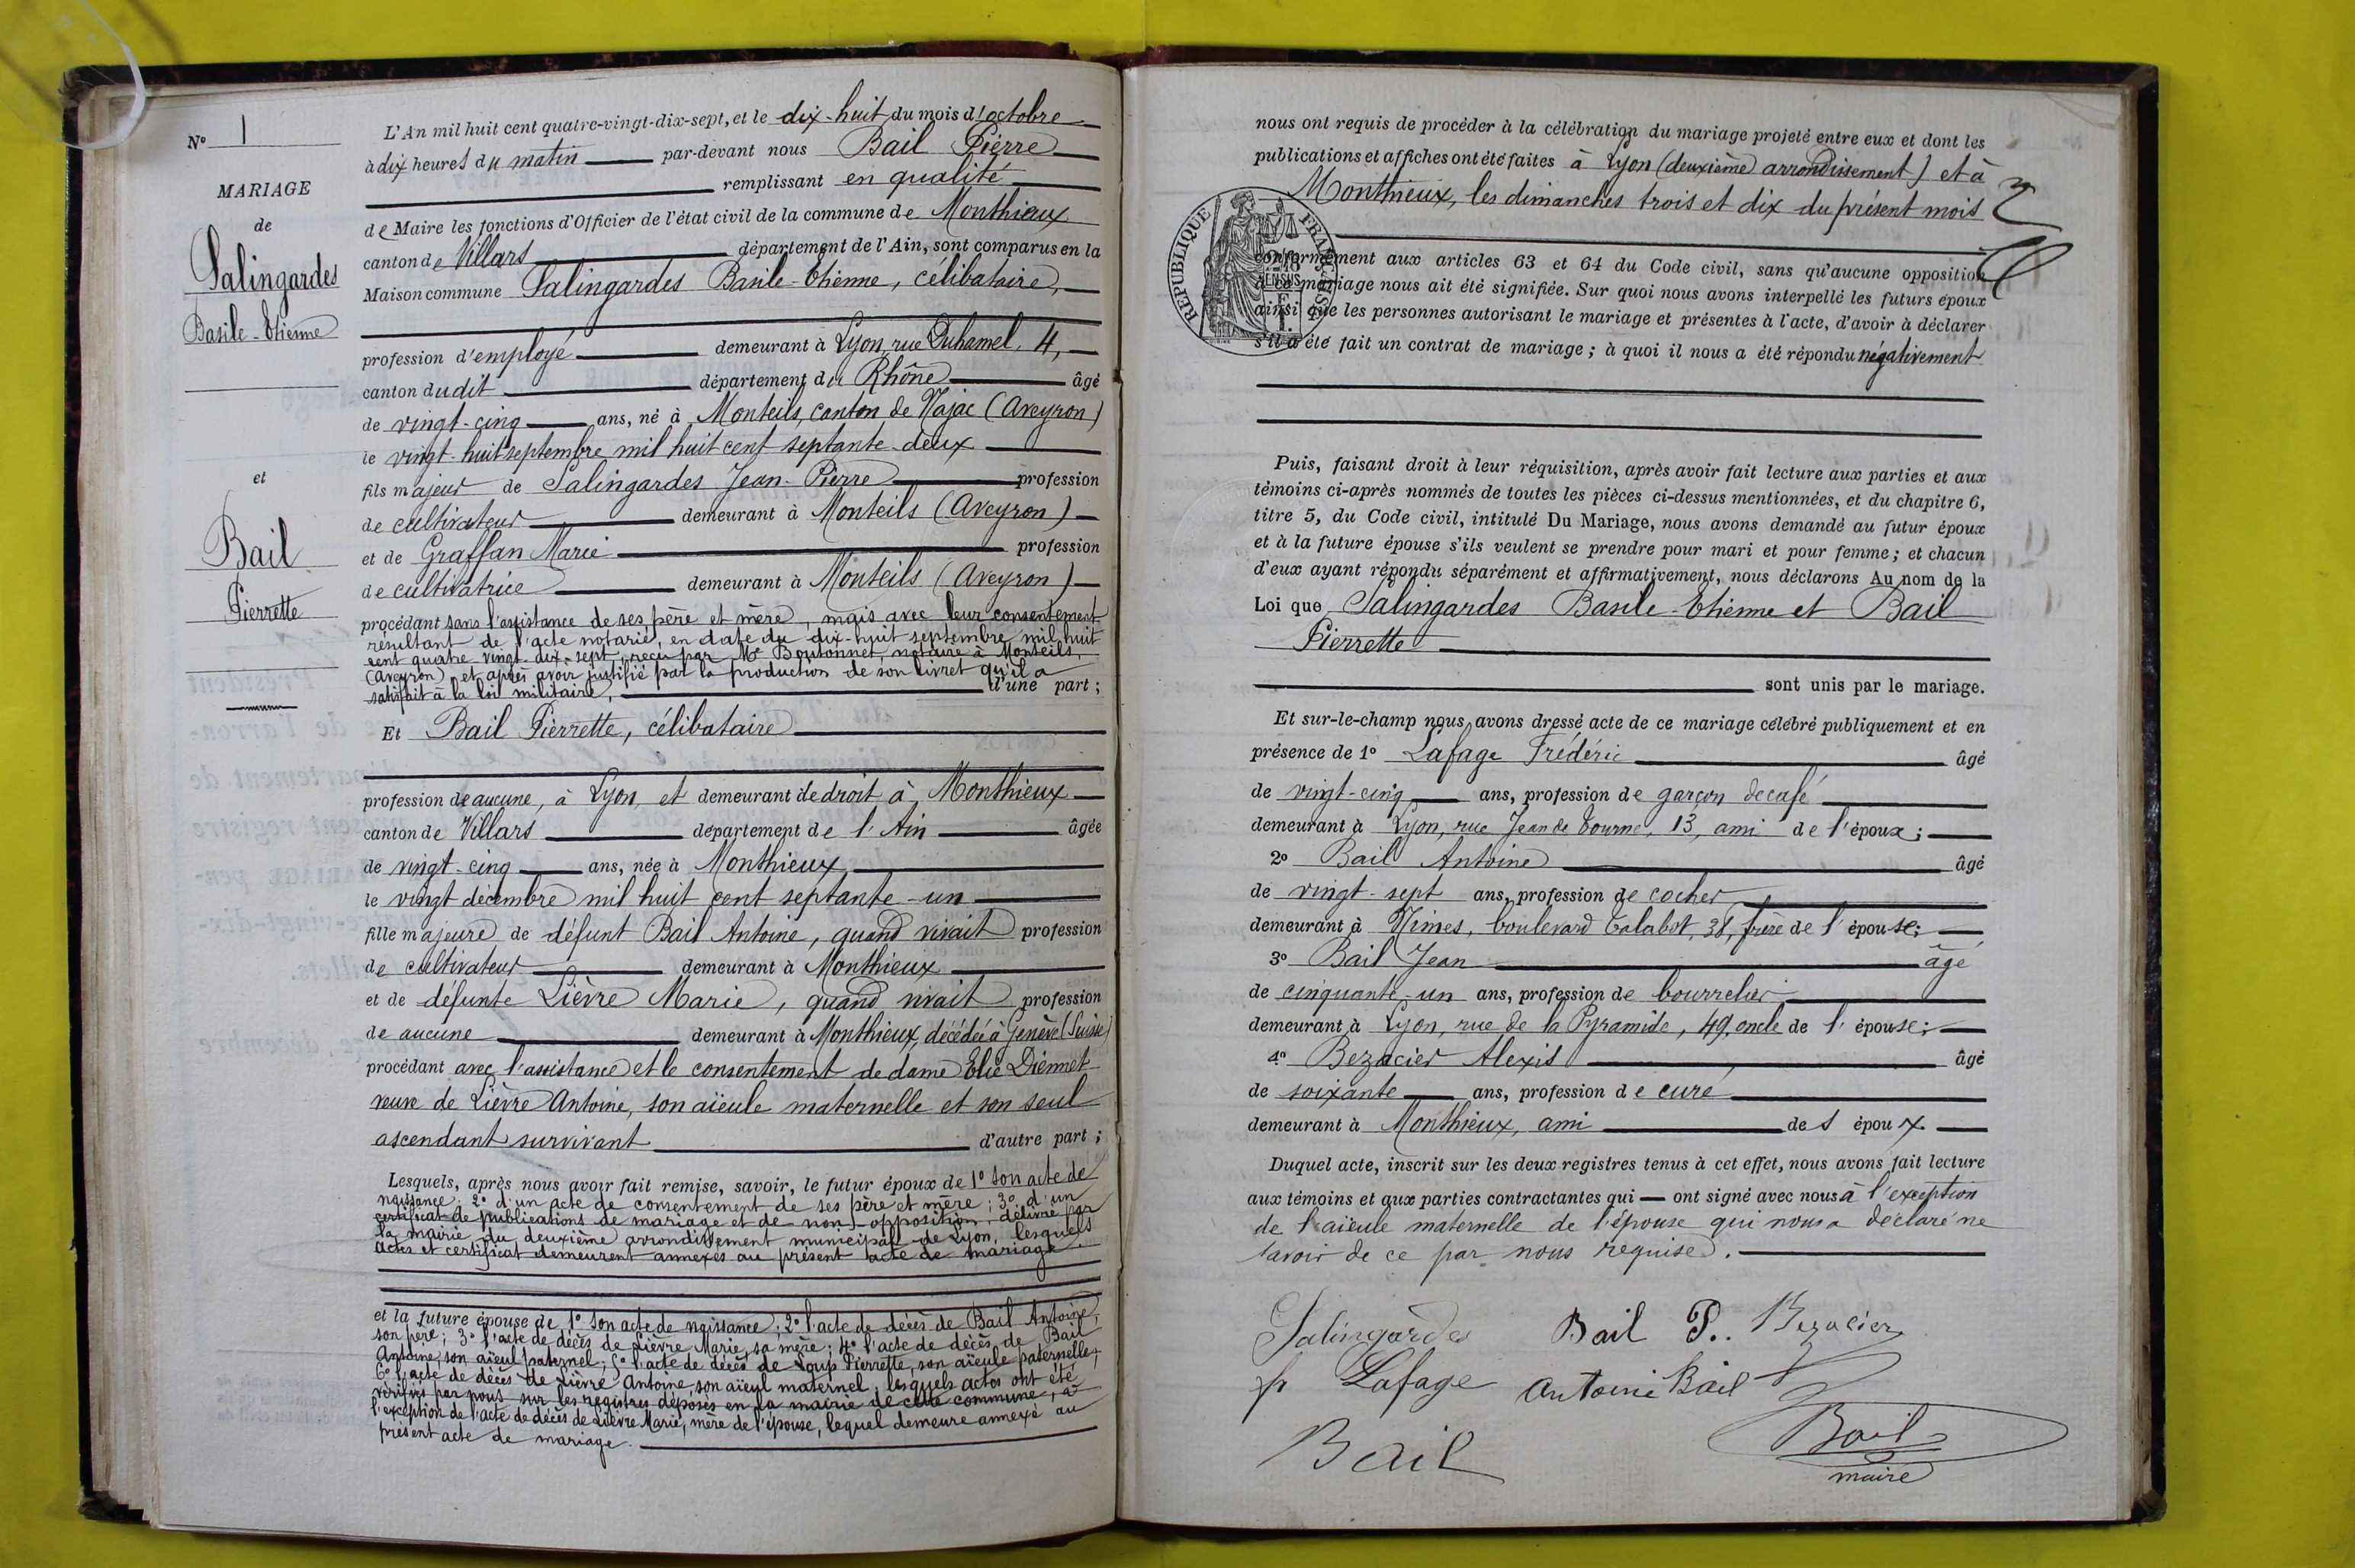 N° 1
MARIAGE
de
Salingardes
Basile-Etienne
et
Bail
Pierrette
L'An mil huit cent quatre-vingt-dix-sept, et le dix-huit du mois d'octobre
à dix heures du matin par-devant nous Bail Pierre
remplissant en qualité
de Maire les fonctions d'Officier de l'état civil de la commune de Monthieux
canton de Villars département de l'Ain, sont comparus en la
Maison commune Salingardes Basile-Etienne, célibataire,
profession d'employé demeurant à Lyon, rue Duhamel, 4,
canton dudit département du Rhône âgé
de vingt-cinq ans, né à Monteils, canton de Najac (Aveyron)
le vingt-huit septembre mil huit cent septante-deux
fils majeur de Salingardes Jean-Pierre profession
de cultivateur demeurant à Monteils (Aveyron)
et de Graffan Marie profession
de cultivatrice demeurant à Monteils (Aveyron)
procédant sans l'assistance de ses père et mère, mais avec leur consentement
résultant de l'acte notarié, en date du dix-huit septembre mil huit
cent quatre vingt-dix-sept, reçu par Me Boutonnet, notaire à Monteils,
(Aveyron), et après avoir justifié par la production de son livret qu'il a
satisfait à la loi militaire, d'une part;
Et Bail Pierrette, célibataire
profession de aucune, à Lyon, et demeurant de droit à Monthieux
canton de Villars département de l'Ain âgée
de vingt-cinq ans, née à Monthieux
le vingt décembre mil huit cent septante-un
fille majeure de défunt Bail Antoine, quand vivait profession
de cultivateur demeurant à Monthieux
et de défunte Lièvre Marie, quand vivait profession
de aucune demeurant à Monthieux, décédée à Genève (Suisse)
procédant avec l'assistance et le consentement de dame Elie Diennet
veuve de Lièvre Antoine, son aïeule maternelle et son seul
ascendant survivant d'autre part;
Lesquels, après nous avoir fait remise, savoir, le futur époux de 1° son acte de
naissance; 2° d'un acte de consentement de ses père et mère; 3° d'un
certificat de publications de mariage et de non-opposition, délivré par
la mairie du deuxième arrondissement municipal de Lyon, lesquels
actes et certificat demeurent annexés au présent acte de mariage.
et la future épouse de 1° son acte de naissance; 2° l'acte de décès de Bail Antoine,
son père; 3° l'acte de décès de Lièvre Marie, sa mère; 4° l'acte de décès de Bail
Antoine, son aïeul paternel; 5° l'acte de décès de Loup Pierrette, son aïeule paternelle;
6° l'acte de décès de Lièvre Antoine, son aïeul maternel, lesquels actes ont été
vérifiés par nous sur les registres déposés en la mairie de cette commune, à
l'exception de l'acte de décès de Lièvre Marie, mère de l'épouse, lequel demeure annexé au
présent acte de mariage.
nous ont requis de procéder à la célébration du mariage projeté entre eux et dont les
publications et affiches ont été faites à Lyon (deuxième arrondissement) et à
Monthieux, les dimanches trois et dix du présent mois
REPUBLIQUE FRANÇAISE
conformément aux articles 63 et 64 du Code civil, sans qu'aucune opposition
à ce mariage nous ait été signifiée. Sur quoi nous avons interpellé les futurs époux
ainsi que les personnes autorisant le mariage et présentes à l'acte, d'avoir à déclarer
s'il a été fait un contrat de mariage; à quoi il nous a été répondu négativement
Puis, faisant droit à leur réquisition, après avoir fait lecture aux parties et aux
témoins ci-après nommés de toutes les pièces ci-dessus mentionnées, et du chapitre 6,
titre 5, du Code civil, intitulé Du Mariage, nous avons demandé au futur époux
et à la future épouse s'ils veulent se prendre pour mari et pour femme; et chacun
d'eux ayant répondu séparément et affirmativement, nous déclarons Au nom de la
Loi que Salingardes Basile-Etienne et Bail
Pierrette
sont unis par le mariage.
Et sur-le-champ nous avons dressé acte de ce mariage célébré publiquement et en
présence de 1° Lafage Frédéric âgé
de vingt-cinq ans, profession de garçon de café
demeurant à Lyon, rue Jean de Tourne, 13, ami de l'époux;
2° Bail Antoine âgé
de vingt-sept ans, profession de cocher
demeurant à Nîmes, boulevard Talabot, 38, frère de l'épouse;
3° Bail Jean âgé
de cinquante-un ans, profession de bourrelier
demeurant à Lyon, rue de la Pyramide, 49, oncle de l'épouse;
4° Bezacier Alexis âgé
de soixante ans, profession de curé
demeurant à Monthieux, ami des époux.
Duquel acte, inscrit sur les deux registres tenus à cet effet, nous avons fait lecture
aux témoins et aux parties contractantes qui ont signé avec nous à l'exception
de l'aïeule maternelle de l'épouse qui nous a déclaré ne
savoir de ce par nous requise.
Salingardes Bail P.. Bezacier
fr Lafage Antoine Bail
Bail Bail
maire